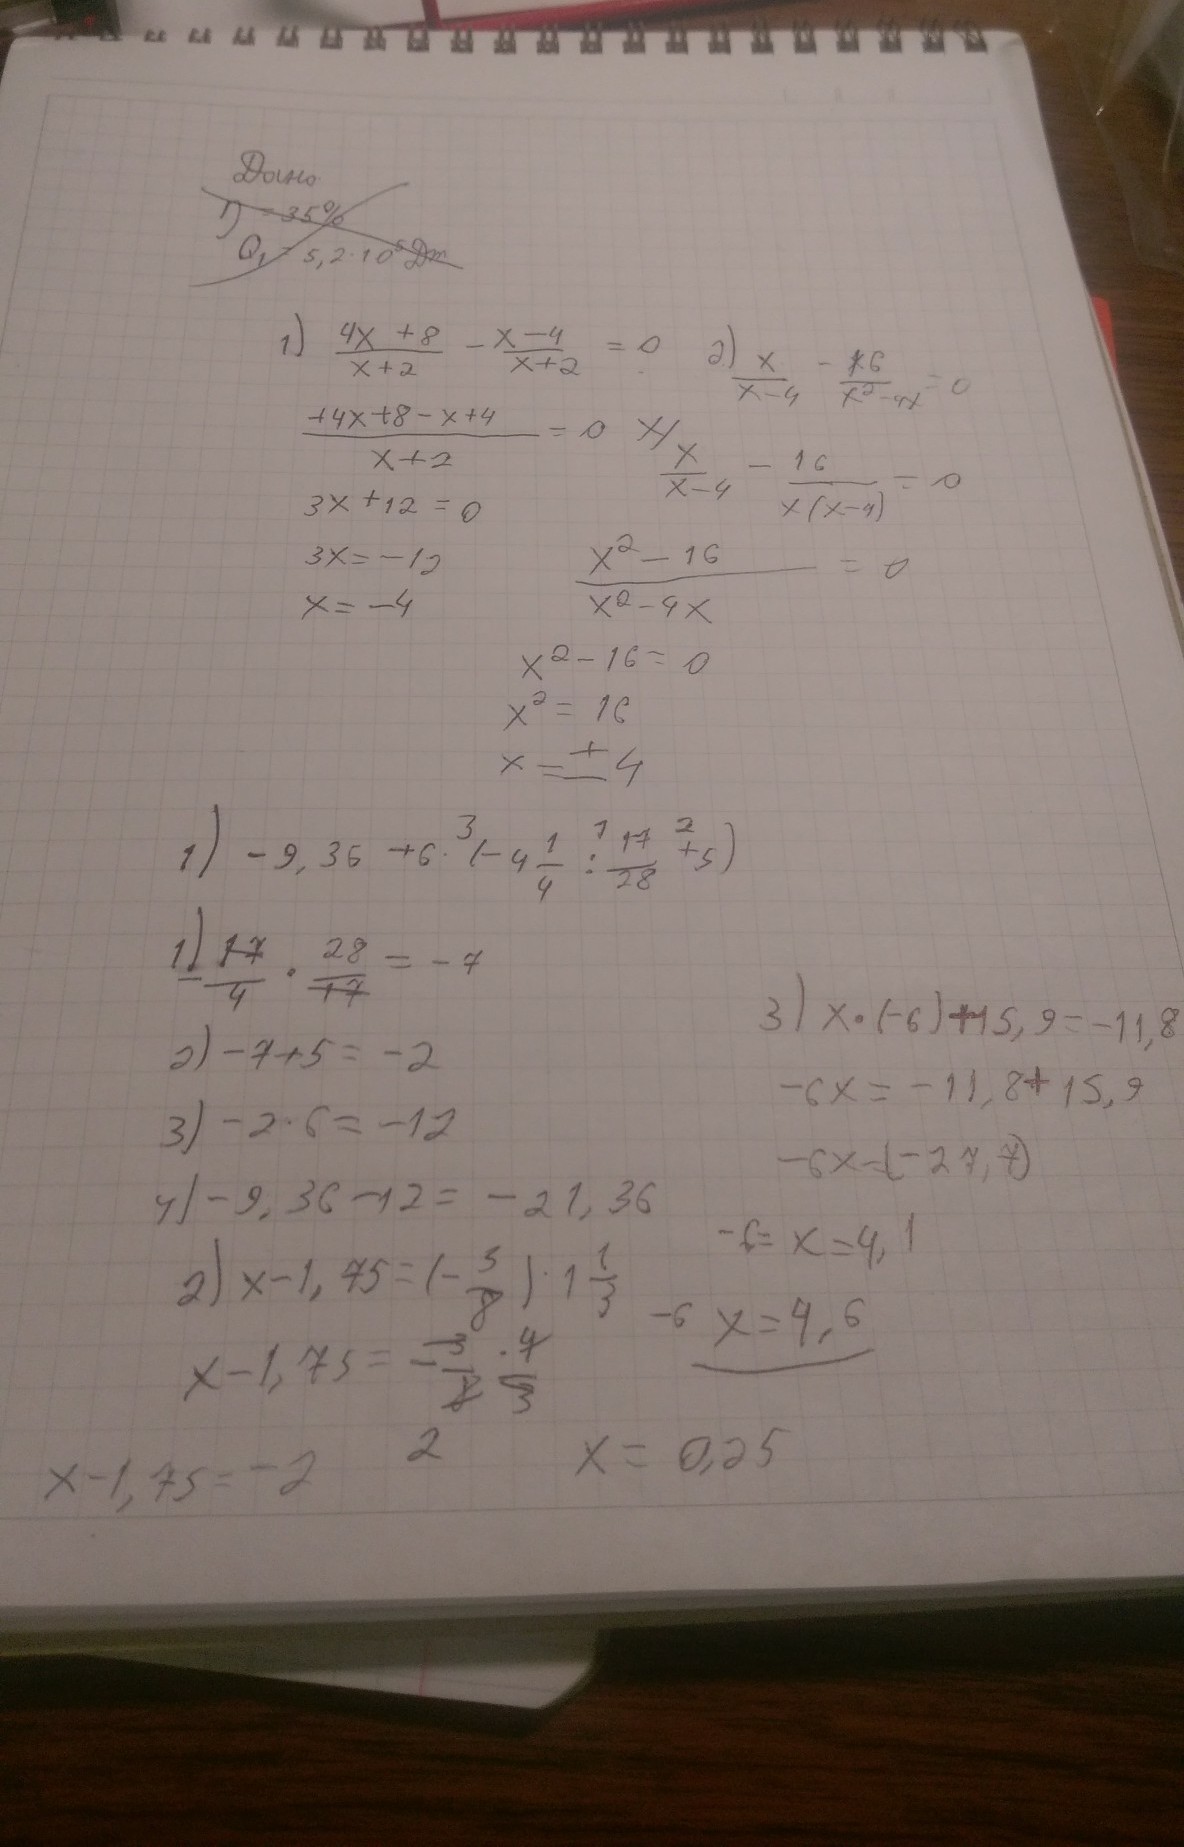 Дано
η = 35%
Q₁ = 5,2·10⁵ Дж
1) (4x+8)/(x+2) - (x-4)/(x+2) = 0
(+4x+8-x+4)/(x+2) = 0
3x+12=0
3x=-12
x=-4
2) x/(x-4) - 16/(x²-4x) = 0
x/(x-4) - 16/(x(x-4)) = 0
(x²-16)/(x²-4x) = 0
x²-16=0
x²=16
x=±4
1) -9,36 +6·³(-4 1/4 :¹ 17/28 +²5)
1) -17/4 · 28/17 = -7
2) -7+5=-2
3) -2·6=-12
4) -9,36-12= -21,36
2) x-1,75=(-3/8)·1 1/3
x-1,75= -3/8 · 4/3
2
x-1,75=-2
x= 0,25
3) x·(-6)+15,9=-11,8
-6x= -11,8+15,9
-6x=(-27,7)
-6= x=4,1
-6 x=4,6